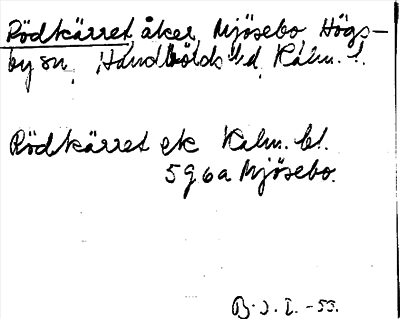 Rödkärret, åker, Mjösebo, Högs-
by sn, Handbölds hd, Kalm. l.
Rödkärret ek Kalm. bl.
5 g 6 a Mjösebo.
B. J. I. -53.